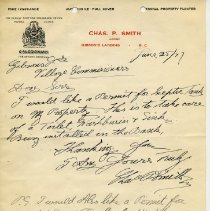 FIRE INSURANCE
FULL COVER
PERSONAL PROPERTY FLOATER
CALEDONIAN
CHAS. P. SMITH
AGENT
GIBSON'S LANDING B.C.
June 25/47
Gibsons
Village Commissioners
Dear Sirs
I would like a Permit for Septic Tank
on My Property This is to take care
of a Toilet Washbasin & Sink
Being installed in the
Thanking You
I am Yours Truly
Chas P Smith
P.S. I would Also like a Permit for